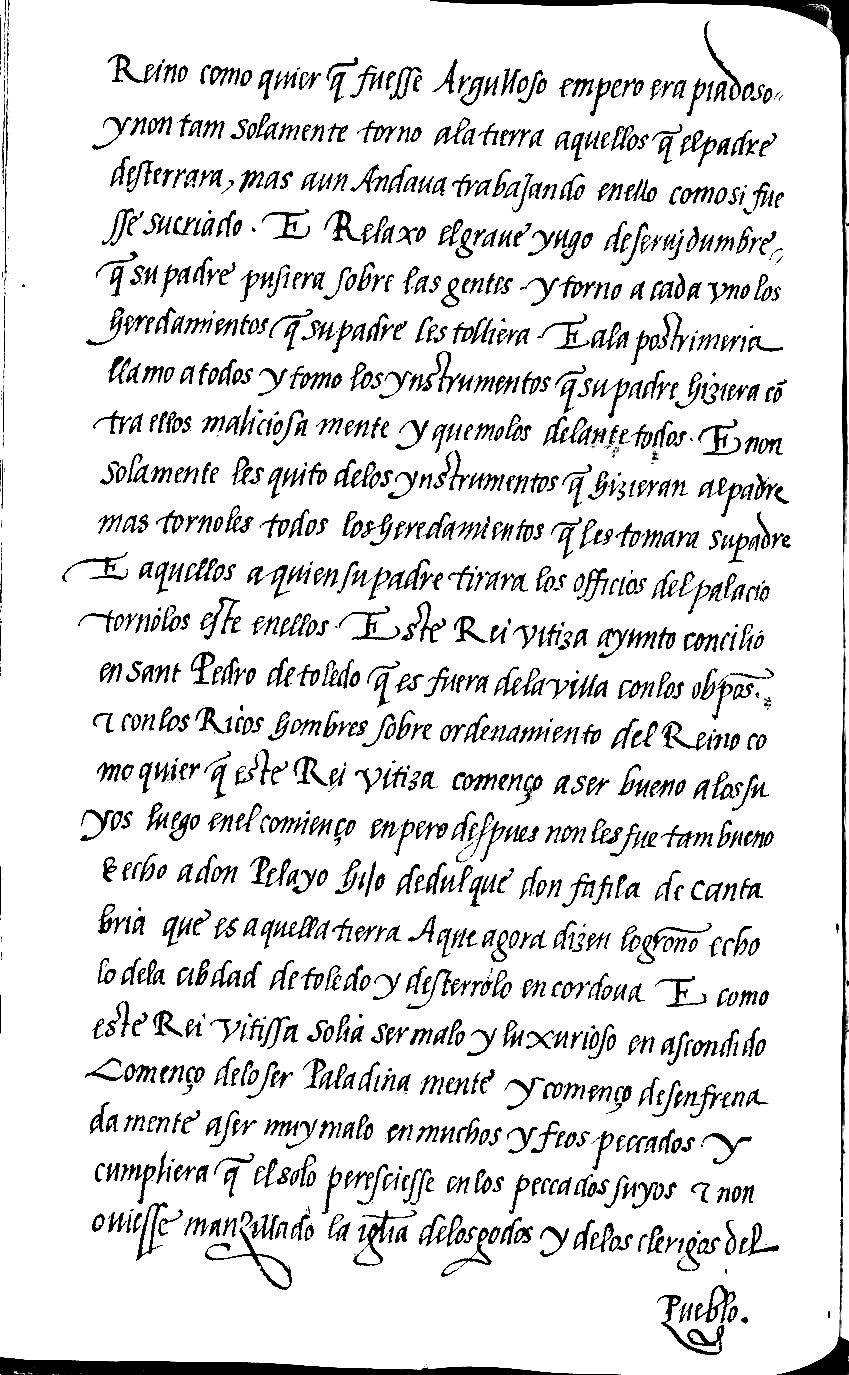 Reino como quier q̄ fuesse Argulloso empero era piadoso
y non tam solamente torno ala tierra aquellos q̄ el padre
desterrara, mas aun Andaua trabajando enello como si fue
sse su criado. E Relaxo el graue yugo de seruidumbre,
q̄ su padre pusiera sobre las gentes y torno a cada vno los
heredamientos q̄ su padre les tolliera. E ala postrimeria
llamo a todos y tomo los ynstrumentos q̄ su padre hiziera cō
tra ellos maliciosa mente y quemolos delante todos. E non
solamente les quito delos ynstrumentos q̄ hizieran al padre
mas tornoles todos los heredamientos q̄ les tomara su padre
E aquellos a quien su padre tirara los officios del palacio
tornólos este enellos. Este Rei vitiza ayunto concilio
en sant Pedro de toledo q̄ es fuera dela villa con los obp̄os.
& con los Ricos hombres sobre ordenamiento del Reino co
mo quier q̄ este Rei vitiza començo a ser bueno a los su
yos luego enel comienço en pero despues non les fue tam bueno
& echo a don Pelayo hijo de dulque don fafila de canta
bria que es aquella tierra Aque agora dizen logroño echo
lo dela cibdad de toledo y desterrólo en cordoua E como
este Rei vitissa solia ser malo y luxurioso en ascondido
Començo delo ser Paladina mente y començo desenfrena
damente a ser muy malo en muchos y feos peccados y
cumpliera q̄ el solo peresciesse en los peccados suyos & non
ouiesse manzillado la igl̄ia delos godos y delos clerigos del
Pueblo.